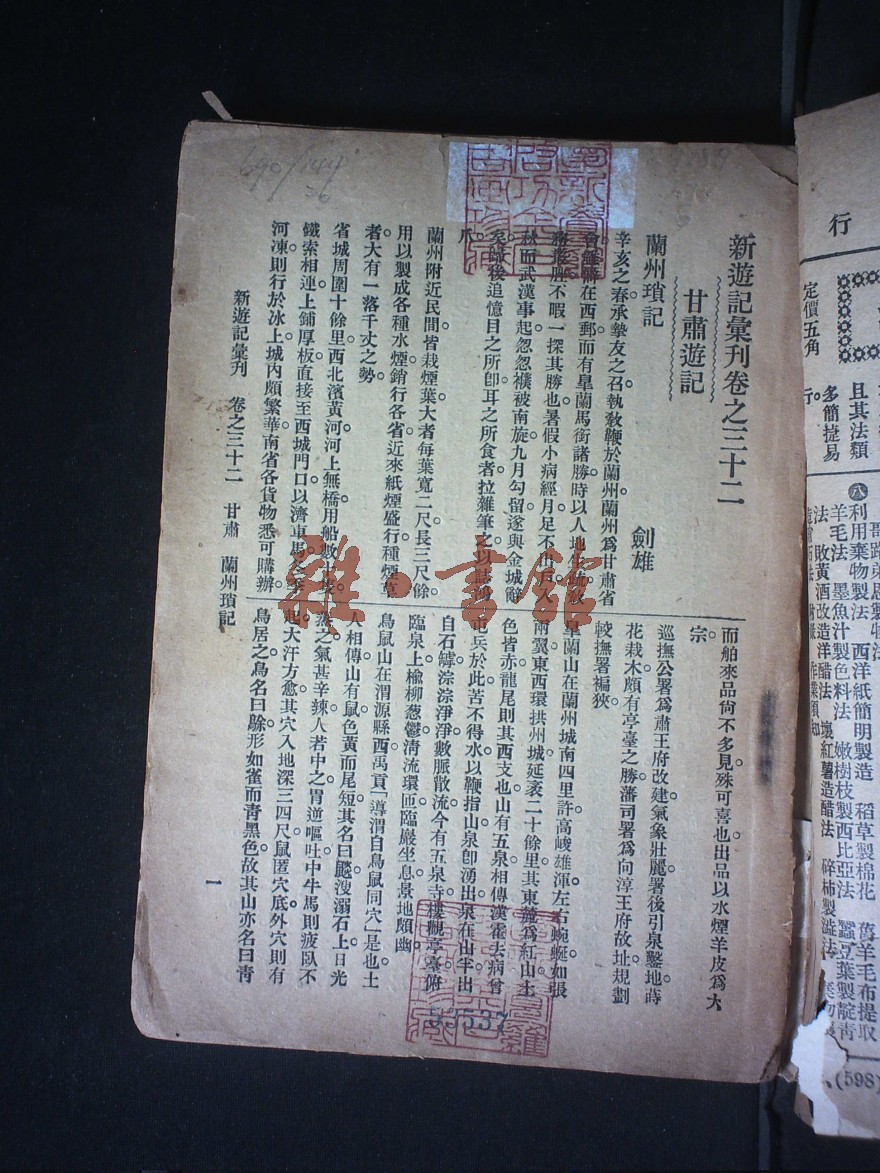 新遊記彙刊卷之三十二
甘肅遊記
蘭州瑣記
劍雄
辛亥之春承摯友之召執敎鞭於蘭州蘭州爲甘肅省
在西鄙而有臯蘭馬銜諸勝時以人地生疏敎
不暇一探其勝也暑假小病經月足不出戶入
秋而武漢事起怱怱襆被南旋九月勾留遂與金城辭
矣歸後追憶目之所卽耳之所食者拉雜筆之以誌鴻
爪
蘭州附近民間皆栽煙葉大者每葉寬二尺長三尺餘
用以製成各種水煙銷行各省近來紙煙盛行種煙草
者大有一落千丈之勢
省城周圍十餘里西北濱黃河河上無橋用船數十艘
鐵索相連上鋪厚板直接至西城門口以濟車馬冬季
河凍則行於冰上城內頗繁華南省各貨物悉可購辦
新遊記彙刊 卷之三十二 甘肅 蘭州瑣記
而舶來品尙不多見殊可喜也出品以水煙羊皮爲大
宗
巡撫公署爲肅王府改建氣象壯麗署後引泉鑿地蒔
花栽木頗有亭臺之勝藩司署爲向淳王府故址規劃
較撫署褊狹
臯蘭山在蘭州城南四里許高峻雄渾左右蜿蜒如張
兩翼東西環拱州城延袤二十餘里其東麓爲紅山土
色皆赤龍尾則其西支也山有五泉相傳漢霍去病曾
屯兵於此苦不得水以鞭指山泉卽湧出泉在山半出
自石罅淙淙淨淨數脈散流今有五泉寺樓觀亭臺俯
臨泉上楡柳葱鬱淸流環匝臨巖坐息景地頗幽
鳥鼠山在渭源縣西禹貢「導渭自鳥鼠同穴」是也土
人相傳山有鼠色黃而尾短其名曰鼵溲溺石上日光
蒸之氣甚辛辣人若中之胃逆嘔吐中牛馬則疲臥不
起大汗方愈其穴入地深三四尺鼠匿穴底外穴則有
鳥居之鳥名曰鵌形如雀而靑黑色故其山亦名曰靑
一
53537
雜·書館
行
定價五角
且其法類
多簡捷易
行
八
利用棄物製法 西洋紙簡明製造 稻草製棉花 萬羊毛布提取
羊毛法 墨魚汁製色料法 嫩樹枝製西比亞法 蠶豆葉製靛靑
法 敗黃酒改造洋醋法 壞紅薯造醋法 碎柿製澁法
(598)